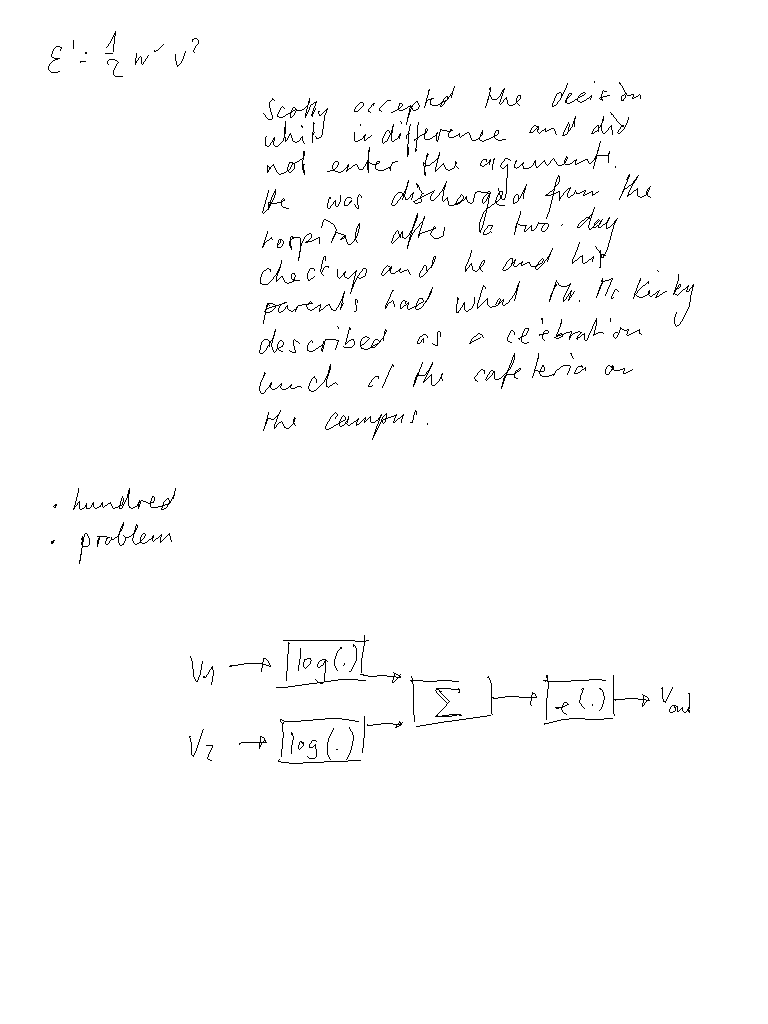 E' = 1/2 m v²
Scotty accepted the decision
whit indifference and did
not enter the arguments.
He was discharged from the
hospital after a two-day
checkup and he and his
parents had what Mr. McKinley
described as a celebration
lunch at the cafeteria on
the campus.
· hundred
· problem
V1 → log(.)
Σ → e(.) → Vout
V2 → log(.)